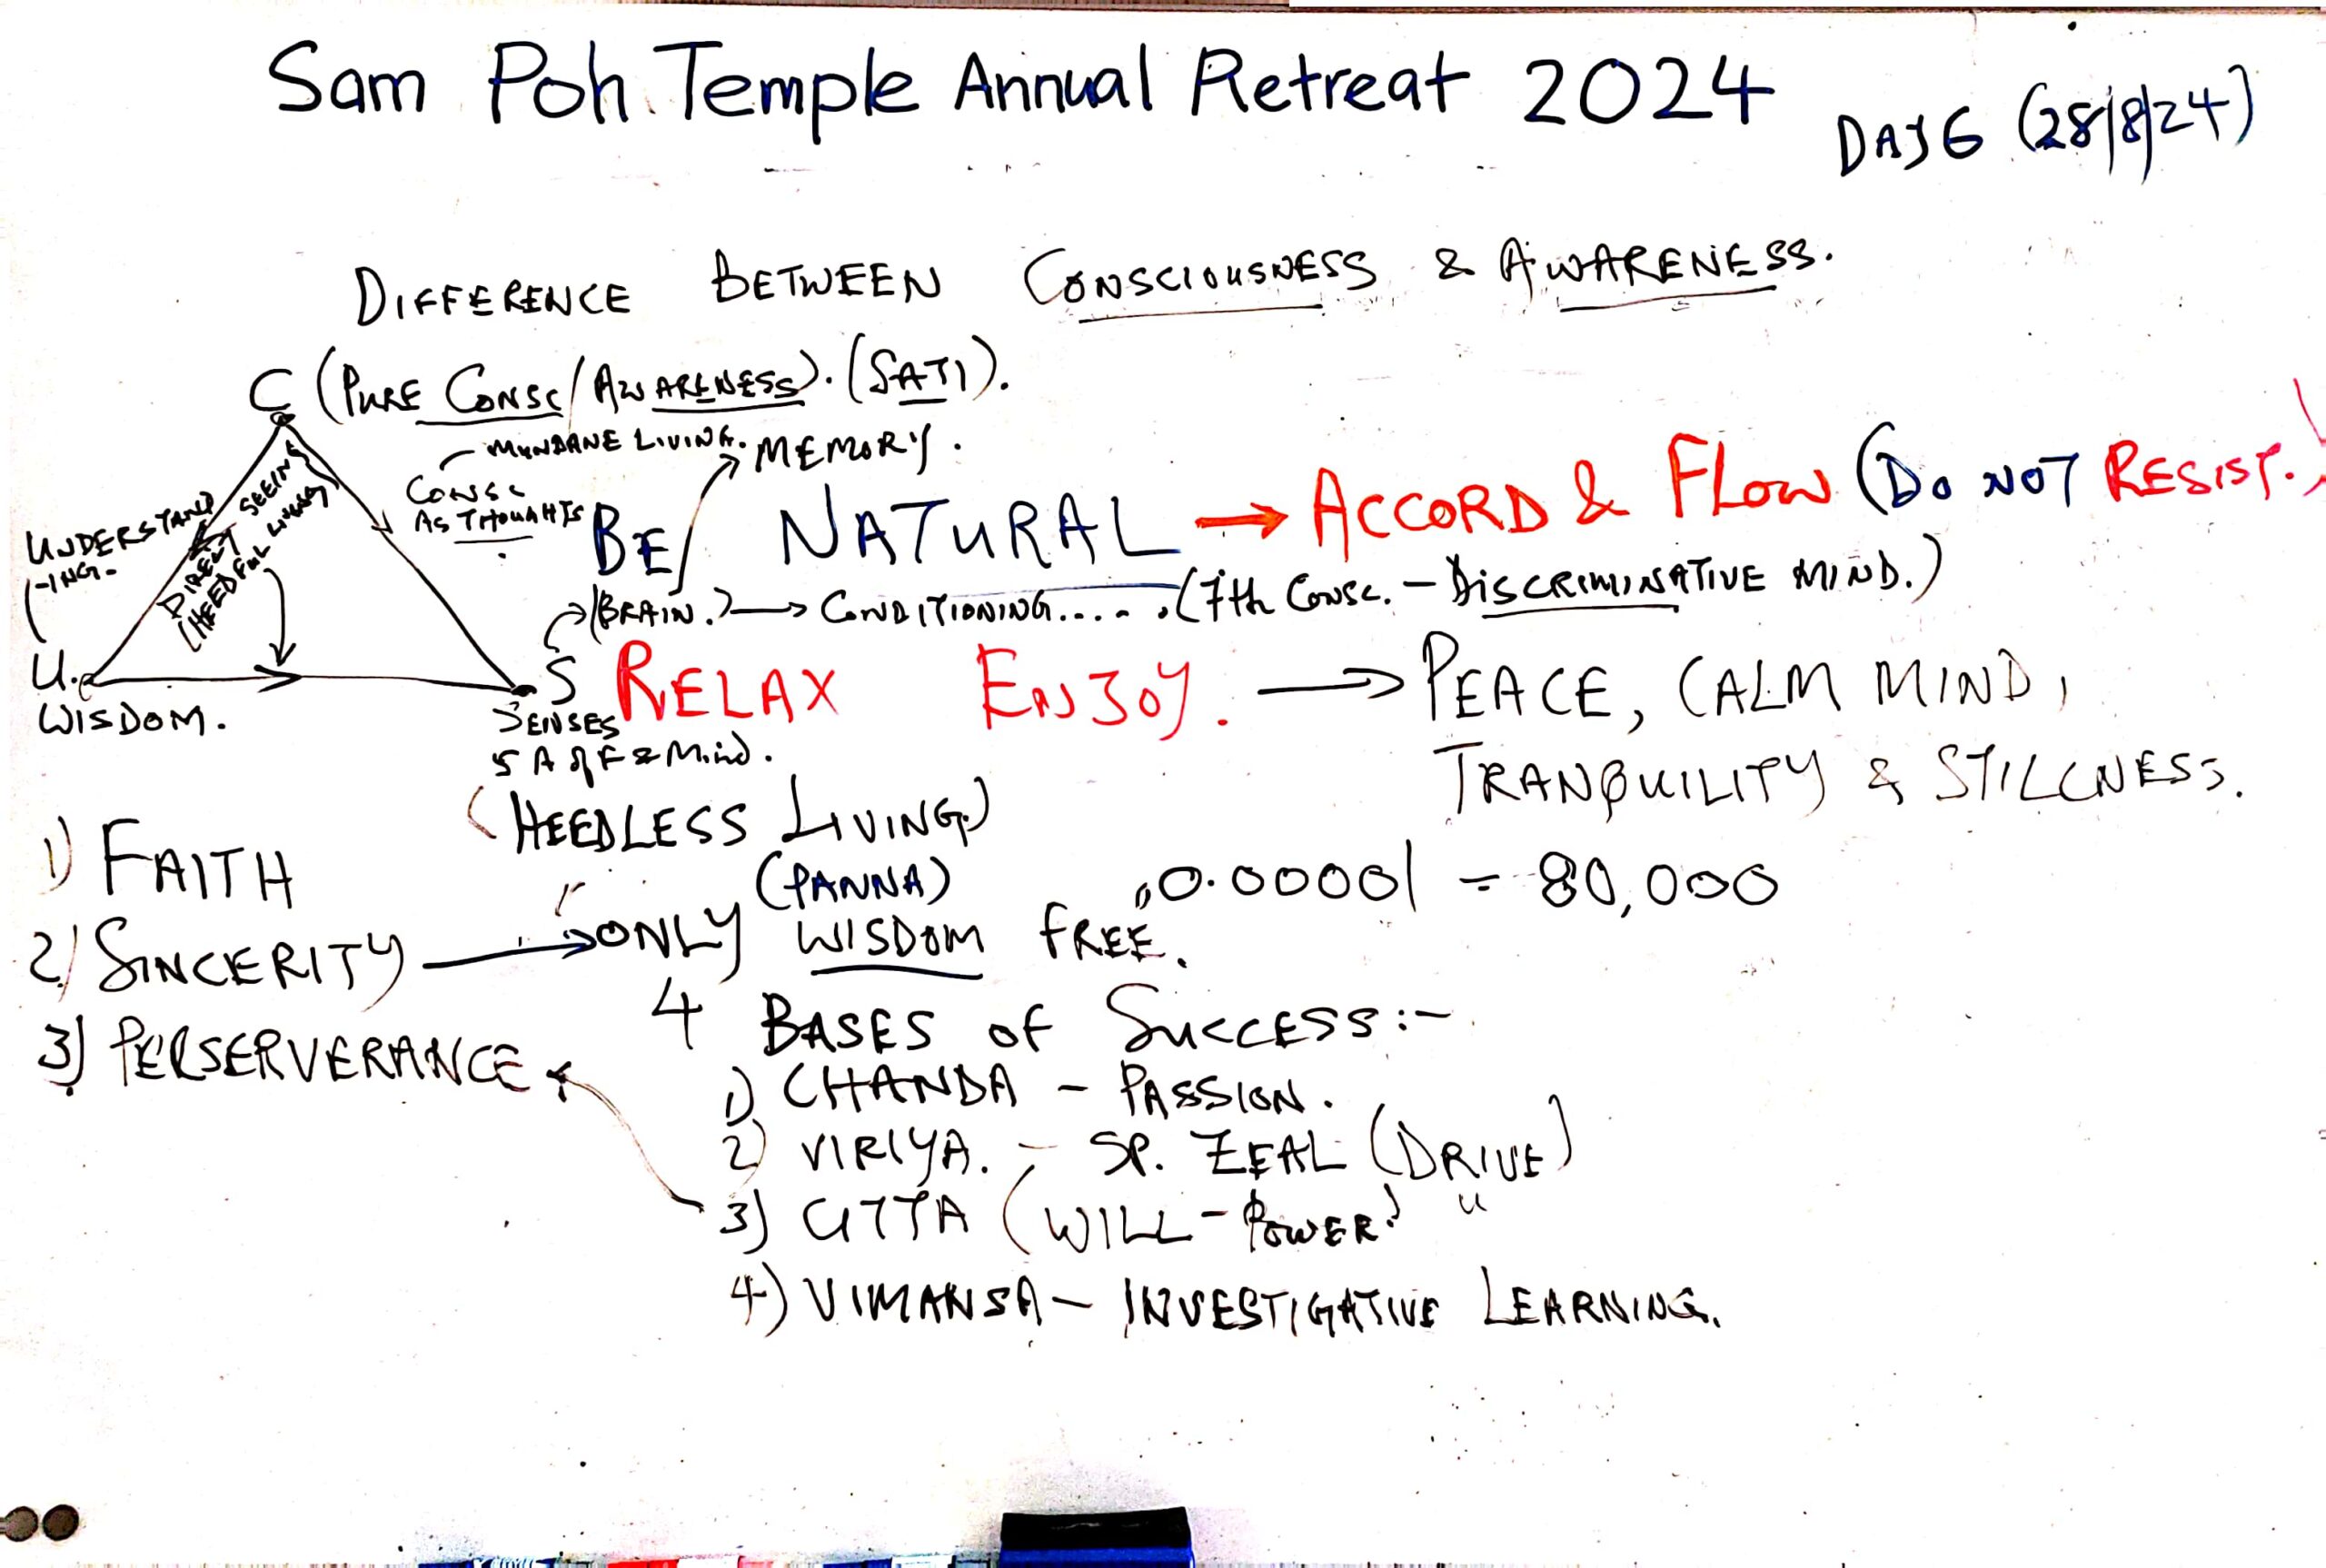 Sam Poh Temple Annual Retreat 2024
DAY 6 (28/8/24)
DIFFERENCE BETWEEN CONSCIOUSNESS & AWARENESS.
C (PURE CONSC/AWARENESS). (SATI).
MUNDANE LIVING. MEMORY.
CONSC
AS THOUGHTS
UNDERSTAND
-ING.
DIRECT SEEING
(HEEDFUL LIVING)
BE NATURAL → ACCORD & FLOW (DO NOT RESIST.)
(BRAIN.) → CONDITIONING..... (7th CONSC. - DISCRIMINATIVE MIND.)
U.
WISDOM.
S
SENSES
5 A of F & Mind.
RELAX ENJOY. → PEACE, CALM MIND,
TRANQUILITY & STILLNESS.
(HEEDLESS LIVING)
1) FAITH
(PANNA) 0.00001 = 80,000
2) SINCERITY → ONLY WISDOM FREE.
3) PERSERVERANCE
4 BASES OF SUCCESS:-
1) CHANDA - PASSION.
2) VIRIYA. - SP. ZEAL (DRIVE)
3) CITTA (WILL-POWER) "
4) VIMANSA - INVESTIGATIVE LEARNING.